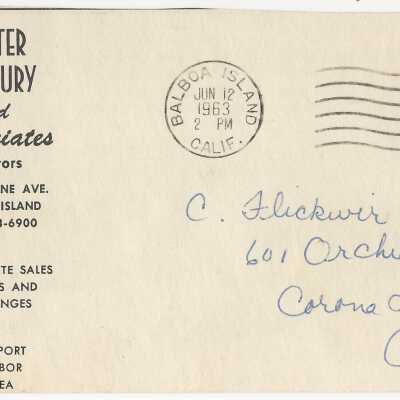 TER
URY
d
iates
tors
NE AVE.
ISLAND
-6900
TE SALES
S AND
NGES
PORT
BOR
EA
BALBOA ISLAND
JUN 12
1963
2 PM
CALIF.
C. Flickwir
601 Orchi
Corona